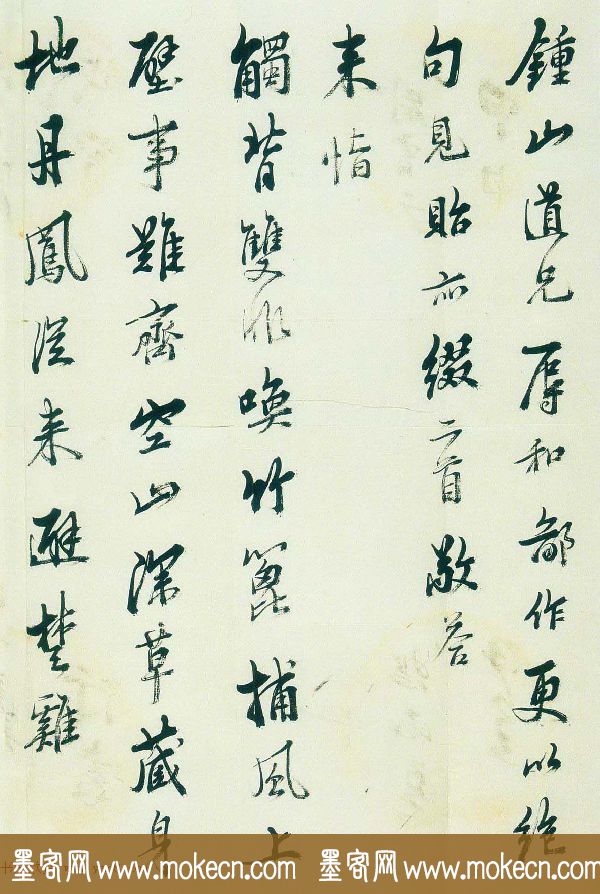 鍾山道兄辱和鄙作更以絶
句見貽亦綴二首敬答
来恉
觸背雙非喚竹篦捕風上
壁事難齊空山深草藏身
地丹鳳從来避楚雞
墨客网 www.mokecn.com 墨客网 www.mokecn.com